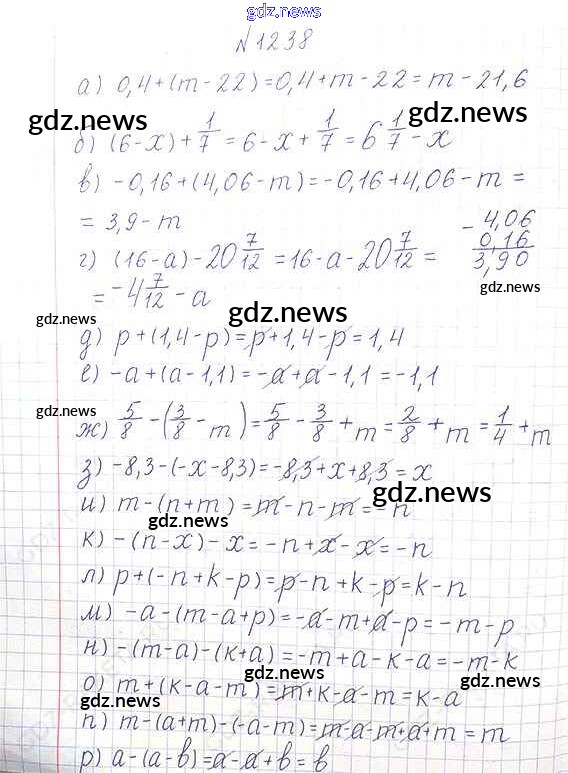 gdz.news
gdz.news
№1238
а) 0,4+(m-22)=0,4+m-22=m-21,6
gdz.news
gdz.news
б) (6-x)+1/7=6-x+1/7=6 1/7-x
в) -0,16+(4,06-m)=-0,16+4,06-m=
=3,9-m
-4,06
0,16
3,90
г) (16-a)-20 7/12=16-a-20 7/12=
gdz.news
=-4 7/12-a
gdz.news
gdz.news
д) p+(1,4-p)=p+1,4-p=1,4
е) -a+(a-1,1)=-a+a-1,1=-1,1
gdz.news
ж) 5/8-(3/8-m)=5/8-3/8+m=2/8+m=1/4+m
з) -8,3-(-x-8,3)=-8,3+x+8,3=x
gdz.news
и) m-(n+m)=m-n-m=-n
gdz.news
к) -(n-x)-x=-n+x-x=-n
л) p+(-n+k-p)=p-n+k-p=k-n
м) -a-(m-a+p)=-a-m+a-p=-m-p
н) -(m-a)-(k+a)=-m+a-k-a=-m-k
gdz.news
о) m+(k-a-m)=m+k-a-m=k-a
gdz.news
п) m-(a+m)-(-a-m)=m-a-m+a+m=m
р) a-(a-b)=a-a+b=b